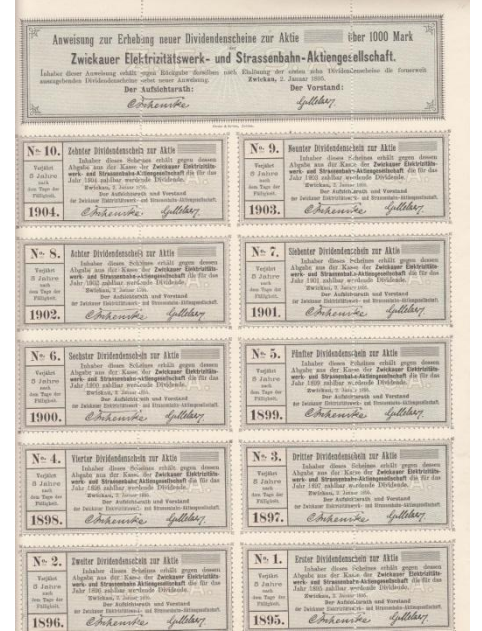 Anweisung zur Erhebung neuer Dividendenscheine zur Aktie über 1000 Mark
der
Zwickauer Elektrizitätswerk- und Strassenbahn-Aktiengesellschaft.
Inhaber dieser Anweisung erhält gegen Rückgabe derselben nach Einlösung der ersten zehn Dividendenscheine die ferneweit
auszugebenden Dividendenscheine nebst neuer Anweisung. Zwickau, 2. Januar 1895.
Der Aufsichtsrath: Der Vorstand:
No 10. Zehnter Dividendenschein zur Aktie
Verjährt
5 Jahre
nach
dem Tage der
Fälligkeit.
Inhaber dieses Scheines erhält gegen dessen
Abgabe aus der Kasse der Zwickauer Elektrizitäts-
werk- und Strassenbahn-Aktiengesellschaft die für das
Jahr 1904 zahlbar werdende Dividende.
Zwickau, 2. Januar 1895.
Der Aufsichtsrath und Vorstand
der Zwickauer Elektrizitätswerk- und Strassenbahn-Aktiengesellschaft.
1904.
No 9. Neunter Dividendenschein zur Aktie
Verjährt
5 Jahre
nach
dem Tage der
Fälligkeit.
Inhaber dieses Scheines erhält gegen dessen
Abgabe aus der Kasse der Zwickauer Elektrizitäts-
werk- und Strassenbahn-Aktiengesellschaft die für das
Jahr 1903 zahlbar werdende Dividende.
Zwickau, 2. Januar 1895.
Der Aufsichtsrath und Vorstand
der Zwickauer Elektrizitätswerk- und Strassenbahn-Aktiengesellschaft.
1903.
No 8. Achter Dividendenschein zur Aktie
Verjährt
5 Jahre
nach
dem Tage der
Fälligkeit.
Inhaber dieses Scheines erhält gegen dessen
Abgabe aus der Kasse der Zwickauer Elektrizitäts-
werk- und Strassenbahn-Aktiengesellschaft die für das
Jahr 1902 zahlbar werdende Dividende.
Zwickau, 2. Januar 1895.
Der Aufsichtsrath und Vorstand
der Zwickauer Elektrizitätswerk- und Strassenbahn-Aktiengesellschaft.
1902.
No 7. Siebenter Dividendenschein zur Aktie
Verjährt
5 Jahre
nach
dem Tage der
Fälligkeit.
Inhaber dieses Scheines erhält gegen dessen
Abgabe aus der Kasse der Zwickauer Elektrizitäts-
werk- und Strassenbahn-Aktiengesellschaft die für das
Jahr 1901 zahlbar werdende Dividende.
Zwickau, 2. Januar 1895.
Der Aufsichtsrath und Vorstand
der Zwickauer Elektrizitätswerk- und Strassenbahn-Aktiengesellschaft.
1901.
No 6. Sechster Dividendenschein zur Aktie
Verjährt
5 Jahre
nach
dem Tage der
Fälligkeit.
Inhaber dieses Scheines erhält gegen dessen
Abgabe aus der Kasse der Zwickauer Elektrizitäts-
werk- und Strassenbahn-Aktiengesellschaft die für das
Jahr 1900 zahlbar werdende Dividende.
Zwickau, 2. Januar 1895.
Der Aufsichtsrath und Vorstand
der Zwickauer Elektrizitätswerk- und Strassenbahn-Aktiengesellschaft.
1900.
No 5. Fünfter Dividendenschein zur Aktie
Verjährt
5 Jahre
nach
dem Tage der
Fälligkeit.
Inhaber dieses Scheines erhält gegen dessen
Abgabe aus der Kasse der Zwickauer Elektrizitäts-
werk- und Strassenbahn-Aktiengesellschaft die für das
Jahr 1899 zahlbar werdende Dividende.
Zwickau, 2. Januar 1895.
Der Aufsichtsrath und Vorstand
der Zwickauer Elektrizitätswerk- und Strassenbahn-Aktiengesellschaft.
1899.
No 4. Vierter Dividendenschein zur Aktie
Verjährt
5 Jahre
nach
dem Tage der
Fälligkeit.
Inhaber dieses Scheines erhält gegen dessen
Abgabe aus der Kasse der Zwickauer Elektrizitäts-
werk- und Strassenbahn-Aktiengesellschaft die für das
Jahr 1898 zahlbar werdende Dividende.
Zwickau, 2. Januar 1895.
Der Aufsichtsrath und Vorstand
der Zwickauer Elektrizitätswerk- und Strassenbahn-Aktiengesellschaft.
1898.
No 3. Dritter Dividendenschein zur Aktie
Verjährt
5 Jahre
nach
dem Tage der
Fälligkeit.
Inhaber dieses Scheines erhält gegen dessen
Abgabe aus der Kasse der Zwickauer Elektrizitäts-
werk- und Strassenbahn-Aktiengesellschaft die für das
Jahr 1897 zahlbar werdende Dividende.
Zwickau, 2. Januar 1895.
Der Aufsichtsrath und Vorstand
der Zwickauer Elektrizitätswerk- und Strassenbahn-Aktiengesellschaft.
1897.
No 2. Zweiter Dividendenschein zur Aktie
Verjährt
5 Jahre
nach
dem Tage der
Fälligkeit.
Inhaber dieses Scheines erhält gegen dessen
Abgabe aus der Kasse der Zwickauer Elektrizitäts-
werk- und Strassenbahn-Aktiengesellschaft die für das
Jahr 1896 zahlbar werdende Dividende.
Zwickau, 2. Januar 1895.
Der Aufsichtsrath und Vorstand
der Zwickauer Elektrizitätswerk- und Strassenbahn-Aktiengesellschaft.
1896.
No 1. Erster Dividendenschein zur Aktie
Verjährt
5 Jahre
nach
dem Tage der
Fälligkeit.
Inhaber dieses Scheines erhält gegen dessen
Abgabe aus der Kasse der Zwickauer Elektrizitäts-
werk- und Strassenbahn-Aktiengesellschaft die für das
Jahr 1895 zahlbar werdende Dividende.
Zwickau, 2. Januar 1895.
Der Aufsichtsrath und Vorstand
der Zwickauer Elektrizitätswerk- und Strassenbahn-Aktiengesellschaft.
1895.